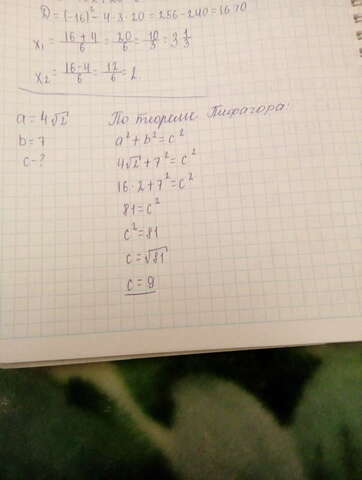 D = (-16)² - 4·3·20 = 256 - 240 = 16 > 0
x₁ = 16+4/6 = 20/6 = 10/3 = 3 1/3
x₂ = 16-4/6 = 12/6 = 2
a = 4√2 По теореме Пифагора:
b = 7 a² + b² = c²
c - ? 4√2 + 7² = c²
16·2 + 7² = c²
81 = c²
c² = 81
c = √81
c = 9